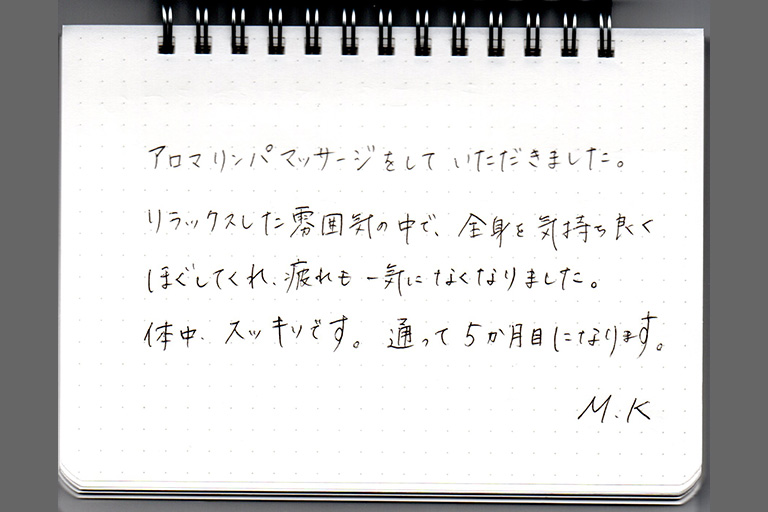 アロマリンパマッサージをしていただきました。
リラックスした雰囲気の中で、全身を気持ち良く
ほぐしてくれ、疲れも一気になくなりました。
体中、スッキリです。通って5か月目になります。
M.K